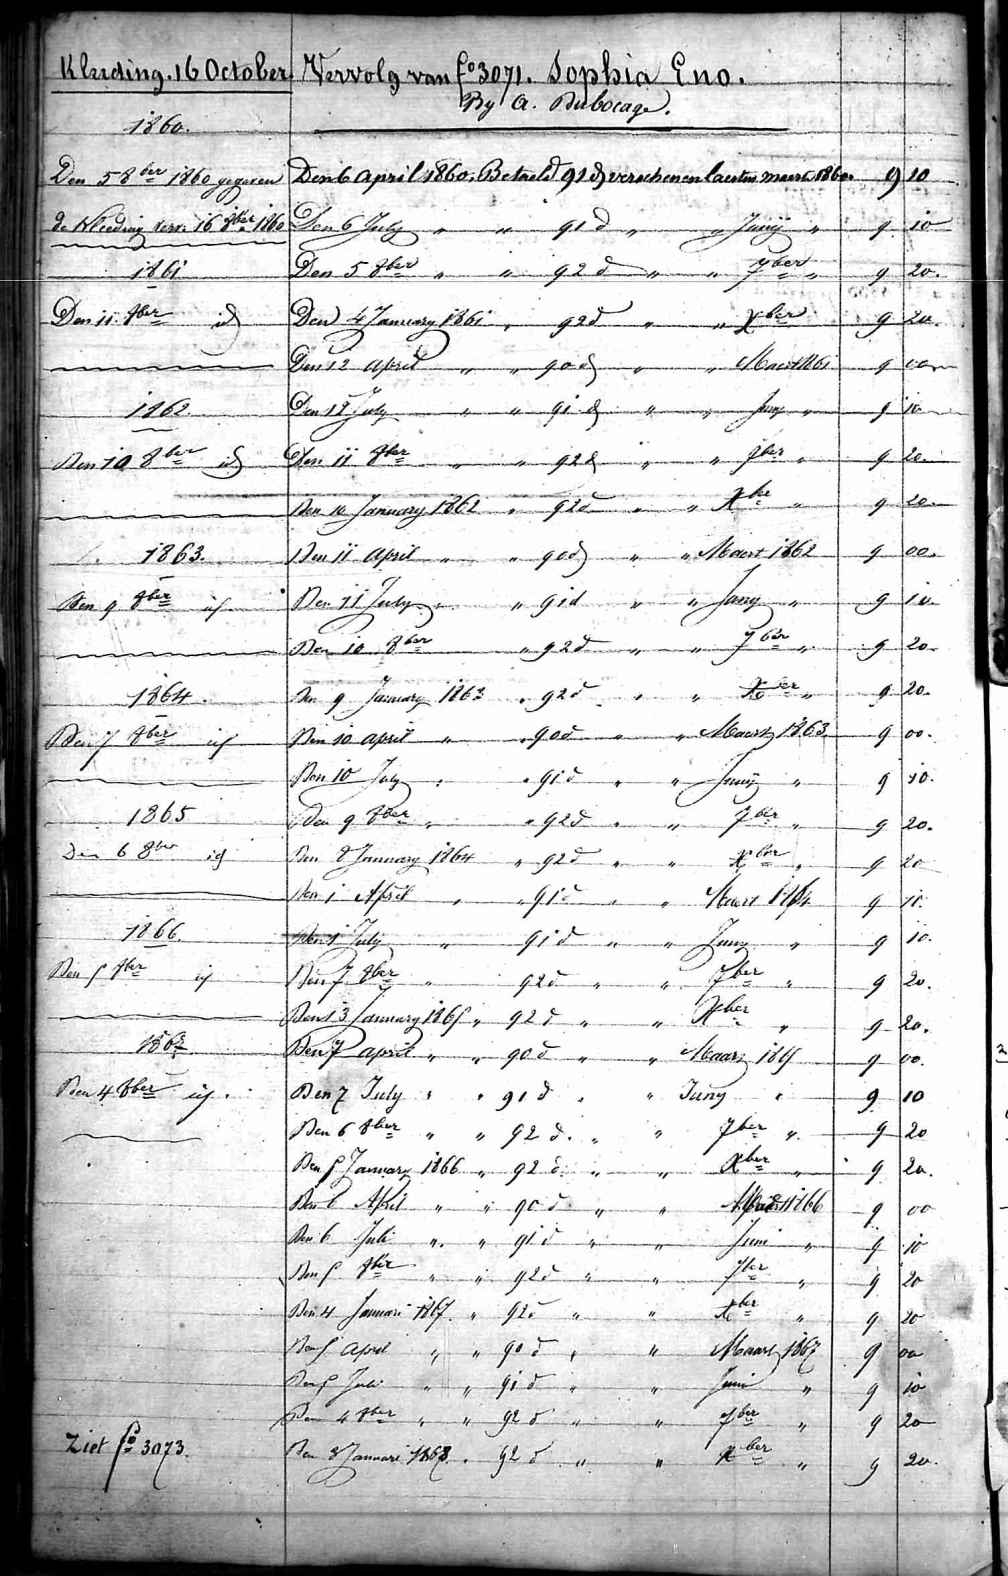 Kleeding. 16 October. Vervolg van fo 3071. Sophia Eno.
By A. Dubocage.
1860.
Den 5 8ber 1860 gegeven Den 6 April 1860. Betaeld 91 d verschenen laesten maert 1860. 9 10
de Kleeding verv. 16 8ber 1860 Den 6 July " " 91 d " " Junij " 9 10
1861 Den 5 8ber " " 92 d " " 7ber " 9 20.
Den 11. 8ber id Den 4 January 1861 " 92 d " " Xber 9 20.
Den 12 april " " 90 d " " Maert 1861 9 00
1862 Den 12 July " " 91 d " " Juny " 9 10
Den 10 8ber id Den 11 8ber " " 92 d " " 7ber " 9 20.
Den 10 January 1862 " 92 d " " Xber " 9 20
1863. Den 11 april " " 90 d " " Maert 1862 9 00.
Den 9 8ber id Den 11 July " " 91 d " " Juny " 9 10.
Den 10 8ber " 92 d " " 7ber " 9 20.
1864. Den 9 January 1863 " 92 d " " Xber " 9 20.
Den 7 8ber id Den 10 april " " 90 d " " Maert 1863. 9 00.
Den 10 July " " 91 d " " Junij " 9 10.
1865 Den 9 8ber " " 92 d " " 7ber " 9 20.
Den 6 8ber id Den 8 January 1864 " 92 d " " Xber " 9 20
Den 1 April " " 91 d " " Maert 1864 9
1866. Den 1 July " 91 d " " Juny " 9 10.
Den 5 8ber id Den 7 8ber " 92 d " " 7ber " 9 20.
Den 3 January 1865 " 92 d " " Xber " 9 20.
Den 7 april " " 90 d " " Maart 1865 9 00.
Den 4 8ber id. Den 7 July " " 91 d " " Juny " 9 10
Den 6 8ber " " 92 d. " " 7ber " 9 20
Den 5 January 1866 " 92 d. " " Xber " 9 20.
Den 6 April " " 90 d " " 1866 9 00
Den 6 Juli " " 91 d " " Juni " 9 10
Den 5 8ber " " 92 d " " 7ber " 9 20
Den 4 Januari 1867. " 92 d " " Xber " 9 20
Den 5 April " " 90 d " " Maart 1867 9 00
Den 5 Juli " " 91 d " " Juni " 9 10
Den 4 8ber " " 92 d " " 7ber " 9 20
Ziet fo 3073. Den 3 Januari 1868. " 92 d " " Xber " 9 20.